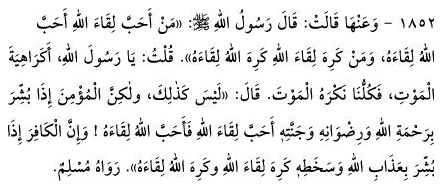 ١٨٥٢ - وَعَنْهَا قَالَتْ: قَالَ رَسُولُ اللهِ ﷺ: «مَنْ أَحَبَّ لِقَاءَ اللهِ أَحَبَّ
اللهُ لِقَاءَهُ، وَمَنْ كَرِهَ لِقَاءَ اللهِ كَرِهَ اللهُ لِقَاءَهُ». قُلْتُ: يَا رَسُولَ اللهِ، أَكَرَاهِيَةَ
الْمَوْتِ، فَكُلُّنَا نَكْرَهُ الْمَوْتَ. قَالَ: «لَيْسَ كَذَلِكَ، وَلَكِنَّ الْمُؤْمِنَ إِذَا بُشِّرَ
بِرَحْمَةِ اللهِ وَرِضْوَانِهِ وَجَنَّتِهِ أَحَبَّ لِقَاءَ اللهِ فَأَحَبَّ اللهُ لِقَاءَهُ ! وَإِنَّ الْكَافِرَ إِذَا
بُشِّرَ بِعَذَابِ اللهِ وَسَخَطِهِ كَرِهَ لِقَاءَ اللهِ وَكَرِهَ اللهُ لِقَاءَهُ». رَوَاهُ مُسْلِمٌ.